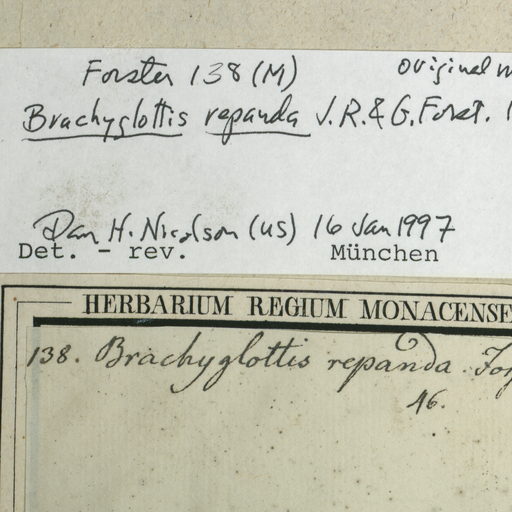 Forster 138 (M) original
Brachyglottis repanda J.R. & G. Forst.
Dan H. Nicolson (US) 16 Jan 1997
Det. - rev. München
HERBARIUM REGIUM MONACENSE
138. Brachyglottis repanda.
46.